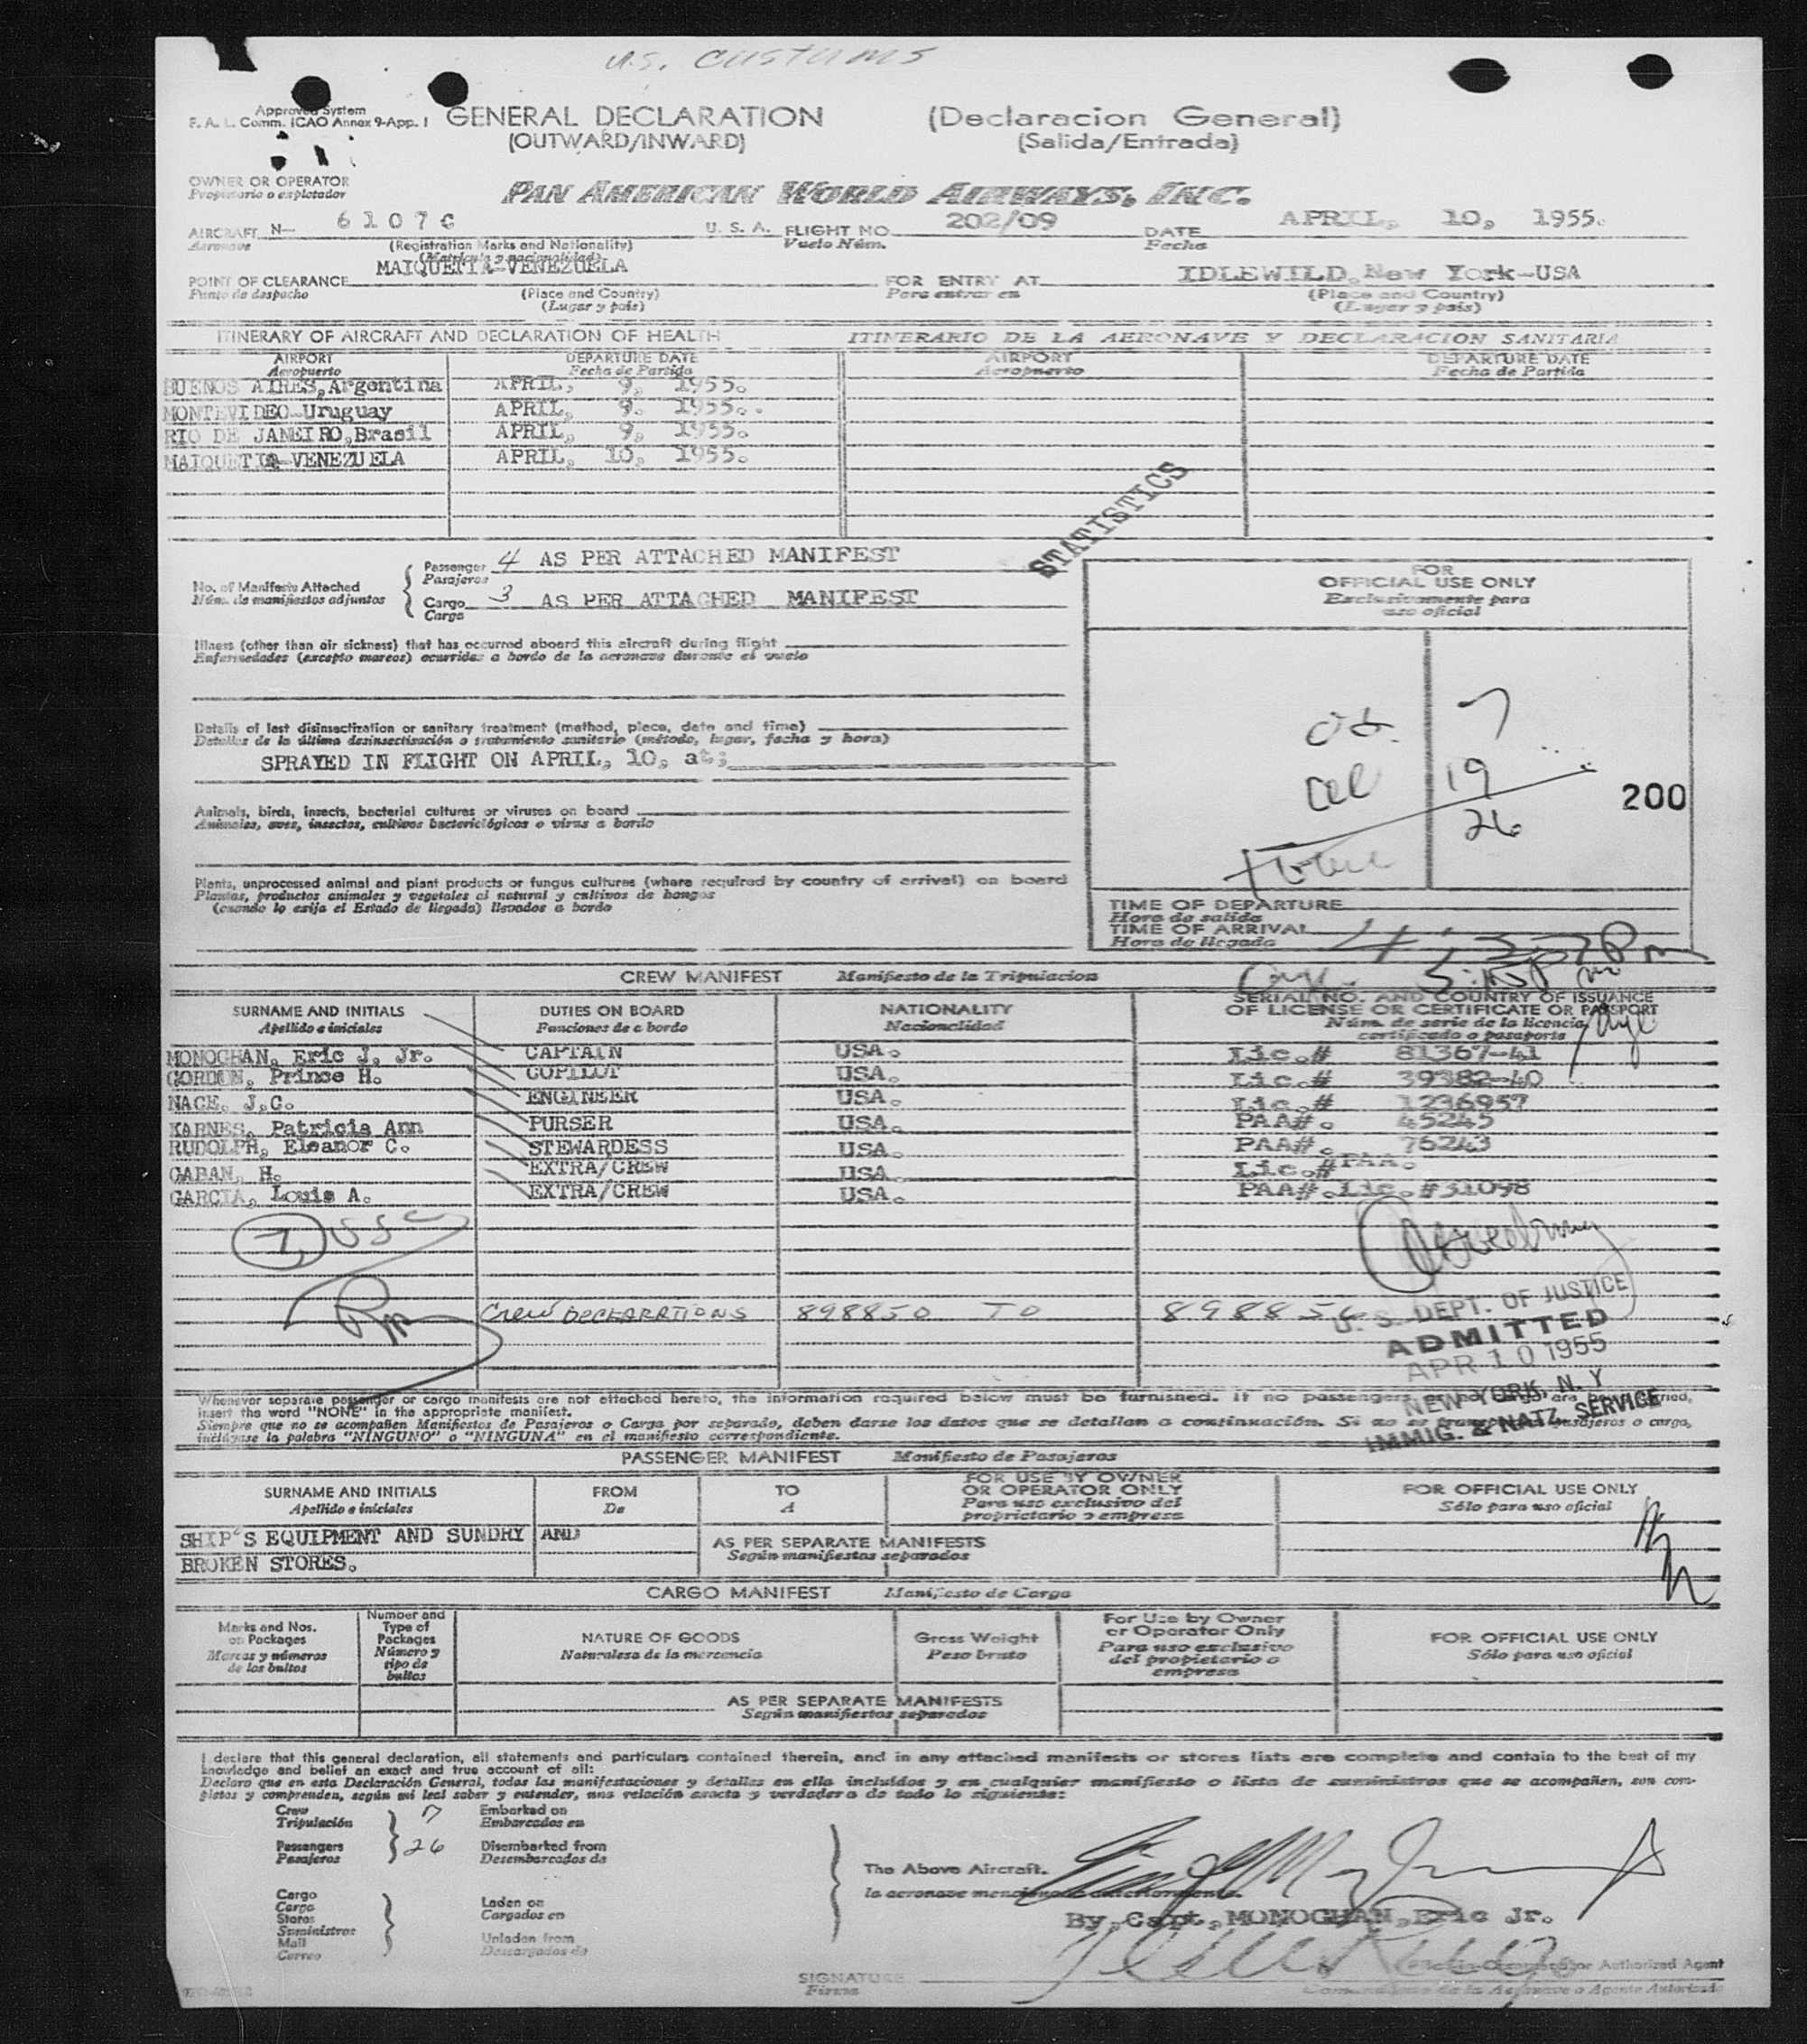 U.S. CUSTOMS
Approved System
F. A. L. Comm. ICAO Annex 9-App. 1
GENERAL DECLARATION (Declaracion General)
(OUTWARD/INWARD) (Salida/Entrada)
OWNER OR OPERATOR
Propietario o explotador
PAN AMERICAN WORLD AIRWAYS, INC.
AIRCRAFT N- 6107C U. S. A. FLIGHT NO 202/09 DATE APRIL, 10, 1955.
Aeronave (Registration Marks and Nationality) Vuelo Núm. Fecha
(Matrícula y nacionalidad)
POINT OF CLEARANCE MAIQUETIA-VENEZUELA FOR ENTRY AT IDLEWILD, New York-USA
Punto de despacho (Place and Country) Para entrar en (Place and Country)
(Lugar y país) (Lugar y país)
ITINERARY OF AIRCRAFT AND DECLARATION OF HEALTH ITINERARIO DE LA AERONAVE Y DECLARACION SANITARIA
AIRPORT DEPARTURE DATE AIRPORT DEPARTURE DATE
Aeropuerto Fecha de Partida Aeropuerto Fecha de Partida
BUENOS AIRES, Argentina APRIL, 9, 1955.
MONTEVIDEO-Uruguay APRIL, 9. 1955..
RIO DE JANEIRO, Brasil APRIL, 9, 1955.
MAIQUETIA-VENEZUELA APRIL, 10, 1955.
STATISTICS
No. of Manifests Attached
Núm. de manifiestos adjuntos
Passenger 4 AS PER ATTACHED MANIFEST
Pasajeros
Cargo 3 AS PER ATTACHED MANIFEST
Carga
FOR
OFFICIAL USE ONLY
Exclusivamente para
uso oficial
Illness (other than air sickness) that has occurred aboard this aircraft during flight
Enfermedades (excepto mareos) ocurridas a bordo de la aeronave durante el vuelo
Details of last disinsectization or sanitary treatment (method, place, date and time)
Detalles de la última desinsectización o tratamiento sanitario (método, lugar, fecha y hora)
SPRAYED IN FLIGHT ON APRIL, 10, at;
7
19
26
200
Animals, birds, insects, bacterial cultures or viruses on board
Animales, aves, insectos, cultivos bacteriológicos o virus a bordo
Plants, unprocessed animal and plant products or fungus cultures (where required by country of arrival) on board
Plantas, productos animales y vegetales al natural y cultivos de hongos
(cuando lo exija el Estado de llegada) llevados a bordo
TIME OF DEPARTURE
Hora de salida
TIME OF ARRIVAL
Hora de llegada
CREW MANIFEST Manifiesto de la Tripulacion
SURNAME AND INITIALS DUTIES ON BOARD NATIONALITY SERIAL NO. AND COUNTRY OF ISSUANCE
OF LICENSE OR CERTIFICATE OR PASSPORT
Apellido e iniciales Funciones de a bordo Nacionalidad Núm. de serie de la licencia,
certificado o pasaporte
MONOGHAN, Eric J. Jr. CAPTAIN USA. Lic.# 81367-41
GORDON, Prince H. COPILOT USA. Lic.# 39382-40
NACE, J.C. ENGINEER USA. Lic.# 1236957
KARNES, Patricia Ann PURSER USA. PAA#. 45245
RUDOLPH, Eleanor C. STEWARDESS USA. PAA#. 76243
GABAN, H. EXTRA/CREW USA. Lic.# PAA.
GARCIA, Louis A. EXTRA/CREW USA. PAA#.Lic.#31098
7
Crew DECLARATIONS 898850 TO 898856
U. S. DEPT. OF JUSTICE
ADMITTED
APR 10 1955
NEW YORK, N. Y
IMMIG. & NATZ. SERVICE
Whenever separate passenger or cargo manifests are not attached hereto, the information required below must be furnished. If no passengers or no cargo are being carried,
insert the word "NONE" in the appropriate manifest.
Siempre que no se acompañen Manifiestos de Pasajeros o Carga por separado, deben darse los datos que se detallan a continuación. Si no se transportan pasajeros o carga,
inclúyase la palabra "NINGUNO" o "NINGUNA" en el manifiesto correspondiente.
PASSENGER MANIFEST Manifiesto de Pasajeros
SURNAME AND INITIALS FROM TO FOR USE BY OWNER OR OPERATOR ONLY FOR OFFICIAL USE ONLY
Apellido e iniciales De A Para uso exclusivo del propietario o empresa Sólo para uso oficial
SHIP'S EQUIPMENT AND SUNDRY AND
BROKEN STORES.
AS PER SEPARATE MANIFESTS
Según manifiestos separados
CARGO MANIFEST Manifiesto de Carga
Marks and Nos. on Packages Number and Type of Packages NATURE OF GOODS Gross Weight For Use by Owner or Operator Only FOR OFFICIAL USE ONLY
Marcas y números de los bultos Número y tipo de bultos Naturaleza de la mercancía Peso bruto Para uso exclusivo del propietario o empresa Sólo para uso oficial
AS PER SEPARATE MANIFESTS
Según manifiestos separados
I declare that this general declaration, all statements and particulars contained therein, and in any attached manifests or stores lists are complete and contain to the best of my
knowledge and belief an exact and true account of all:
Declaro que en esta Declaración General, todas las manifestaciones y detalles en ella incluídos y en cualquier manifiesto o lista de suministros que se acompañen, son com-
pletos y comprenden, según mi leal saber y entender, una relación exacta y verdadera de todo lo siguiente:
Crew 7 Embarked on
Tripulación Embarcados en
Passengers 26 Disembarked from
Pasajeros Desembarcados de
The Above Aircraft.
la aeronave mencionada anteriormente.
Cargo
Carga
Stores
Suministros
Mail
Correo
Laden on
Cargados en
Unladen from
Descargados de
By, Capt, MONOGHAN, Eric Jr.
SIGNATURE
Firma
Authorized Agent
Comandante de la Aeronave o Agente Autorizado